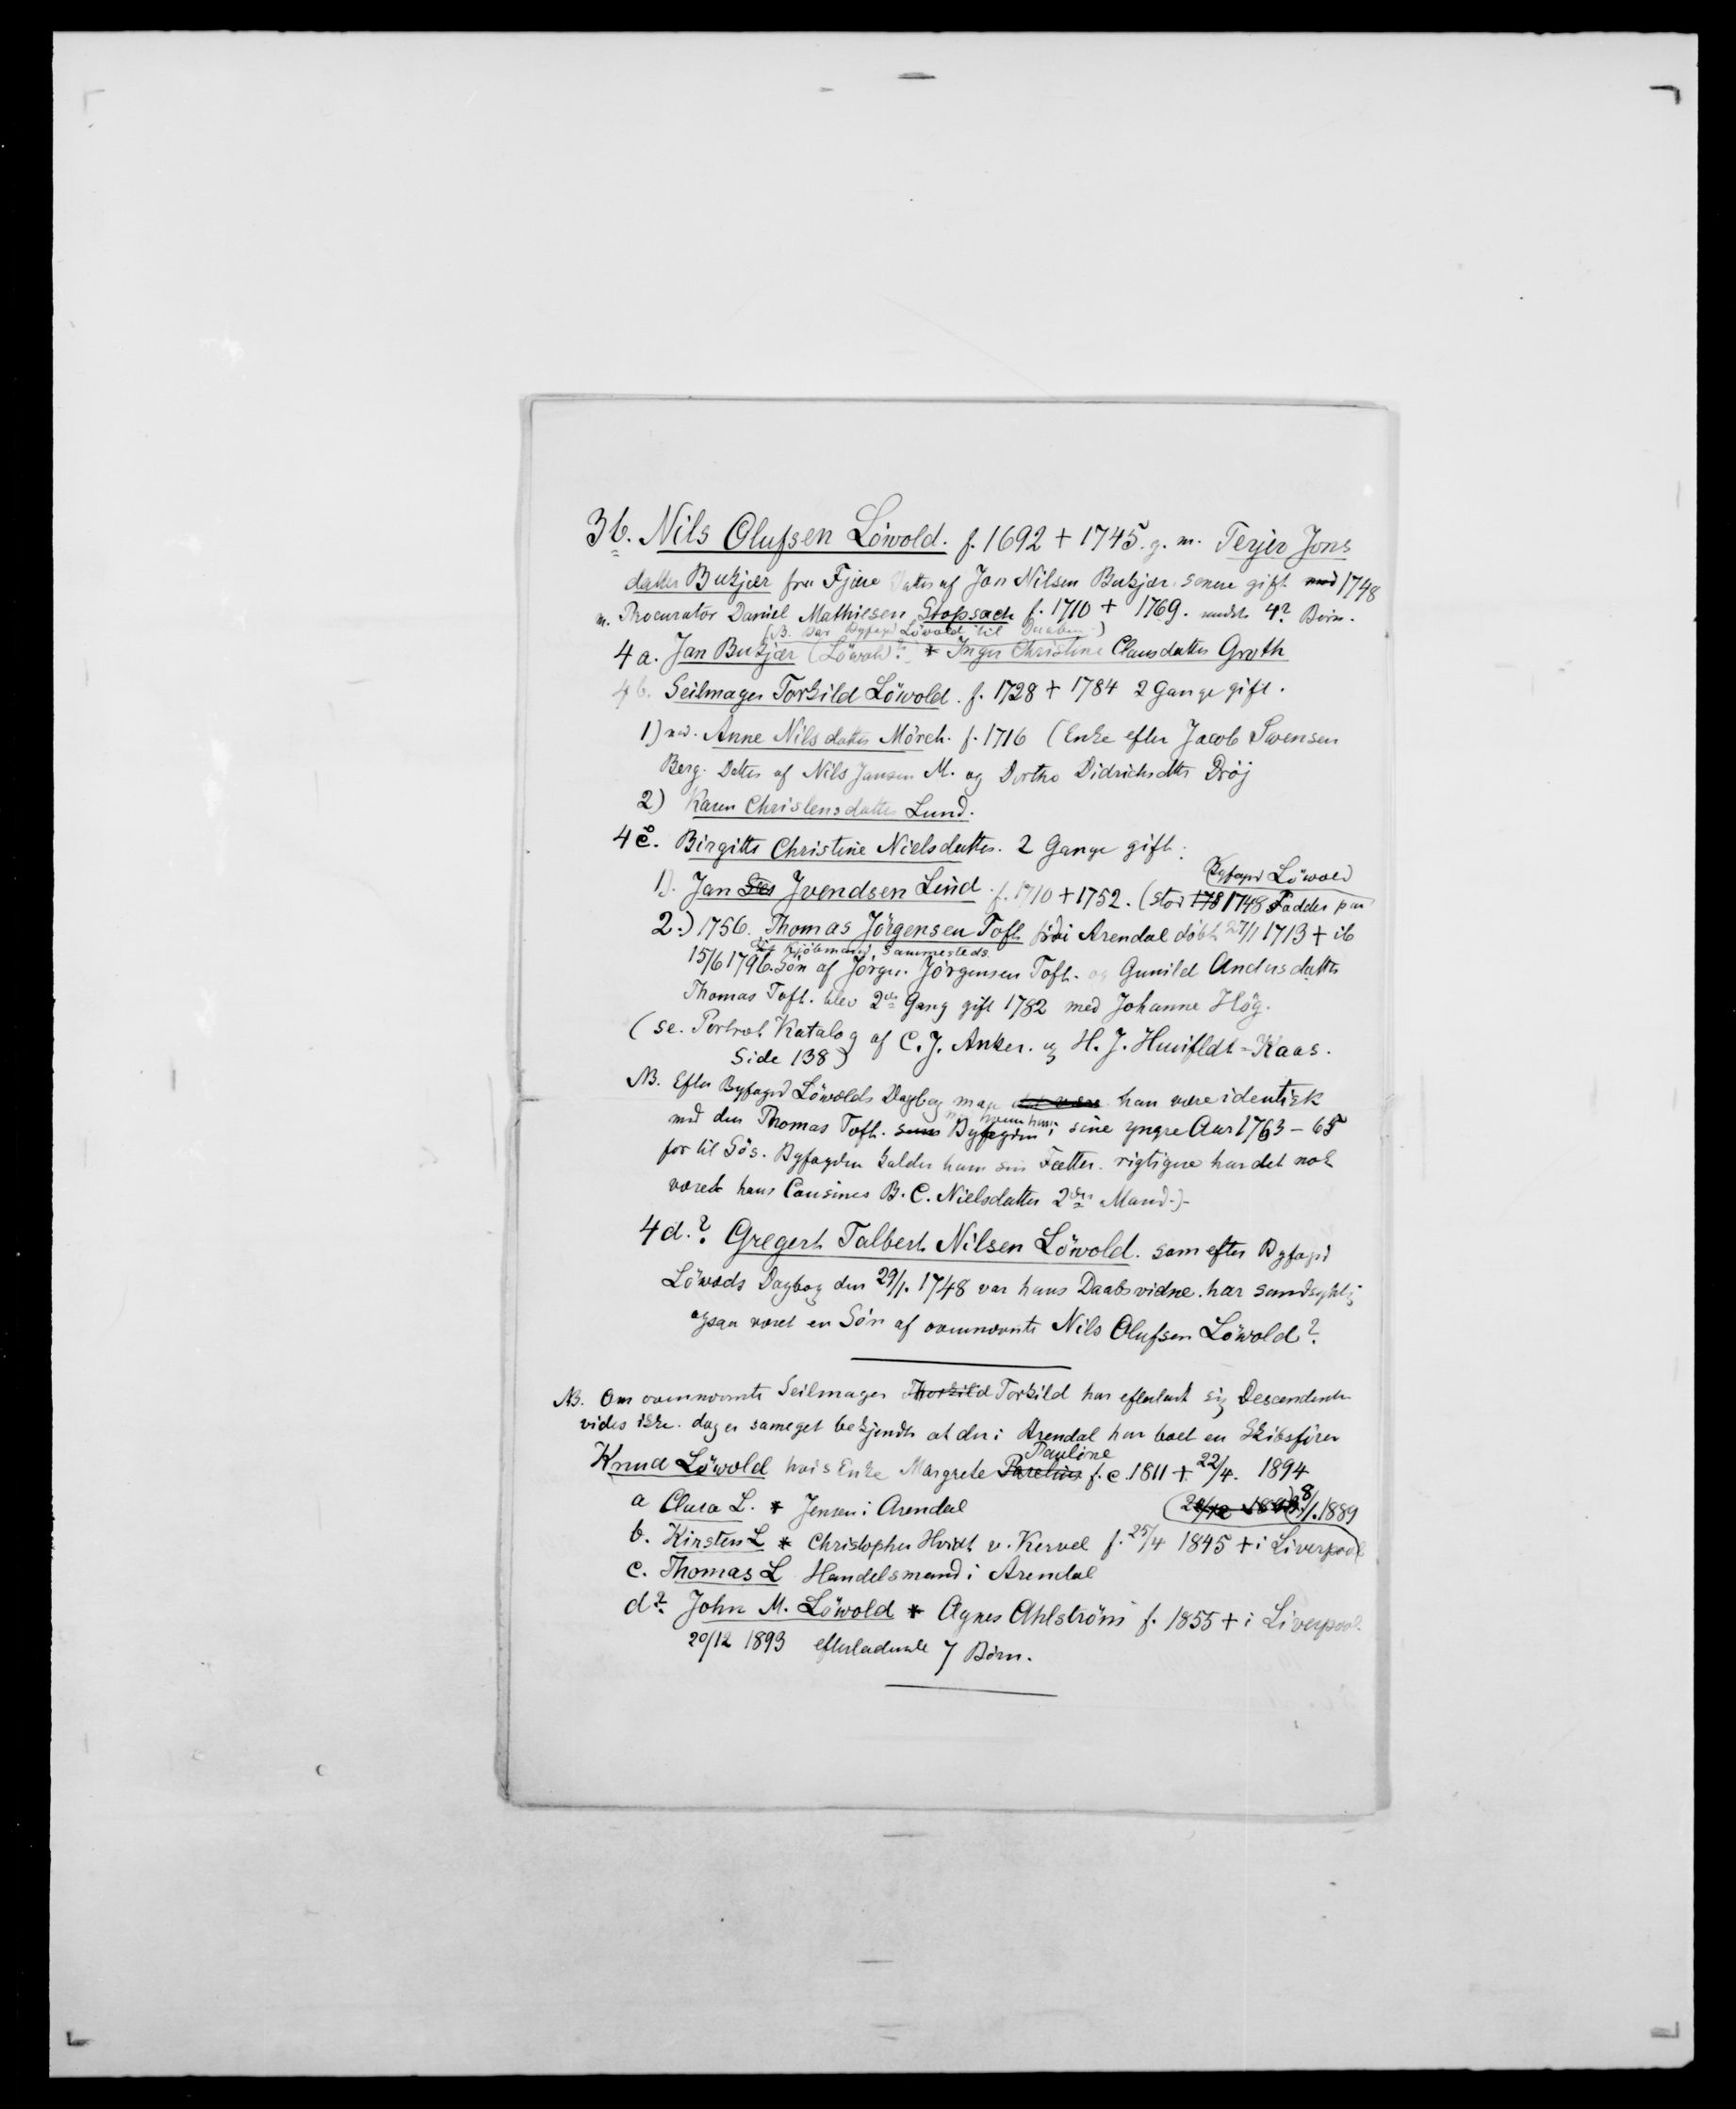 3b. Nils Olufsen Löwold. f. 1692 + 1745. g. m. Terjer Jons
datter Bukjær fra Fjære Datter af Jon Nilsen Bukjær. senere gift med 1748
m. Procurator Daniel Mathiesen Stopsach f. 1710 + 1769. mindst 4? Börn.
(B. bar Byfogd Löwold til Daaben.)
4 a. Jan Bukjær (Löwold?) * Inger Christine Clausdatter Groth
4 b. Seilmager Torkild Löwold. f. 1728 + 1784 2 Gange gift.
1) med. Anne Nilsdatter Mörch. f. 1716 (Enke efter Jacob Svensen
Berg. Datter af Nils Jansen M. og Dorthe Didrichsdtter Dröj
2) Karen Christensdatter Lund.
4 c. Birgitte Christine Nielsdatter. 2 Gange gift.
Byfogd Löwold
1). Jan Jvendsen Lind. f. 1710 + 1752. (stod 178 1748 Fadder paa
2.) 1756. Thomas Jörgensen Toft. fra i Arendal döbt 27/1 1713 + ib
Kjöbmand sammesteds.
15/6 1796. Sön af Jörgen Jörgensen Toft. og Gunild Andersdatter
Thomas Toft. blev 2den Gang gift 1782 med Johanne Hög.
(se. Portræt Katalog af C. J. Anker. og H. J. Huitfeldt-Kaas.
Side 138)
NB. Efter Byfogd Löwolds Dagbog maa det være han være identisk
med hvem han
med den Thomas Toft. som Byfogden i sine yngre Aar 1763 - 65
for til Sös. Byfogden kalder ham sin Fætter. rigtigere har det nok
været hans Cousines B. C. Nielsdatter 2den Mand.)-
4 d.? Gregert Talbert Nilsen Löwold. som efter Byfogd
Löwolds Dagbog den 29/1. 1748 var hans Daabsvidne. har sandsynlig
ogsaa været en Sön af ovennævnte Nils Olufsen Löwold?
NB. Om ovennævnte Seilmager Thorkild Torkild har efterladt sig Descendenter
vides ikke. dog er sameget bekjendt at der i Arendal har boet en Skibsförer
Pauline
Knud Löwold hvis Enke Margrete f. c. 1811 + 22/4. 1894
a Clara L. * Jensen i Arendal
(20/12 1893) 8/1. 1889
b. Kirsten L * Christopher Hvidt v. Kervel f. 25/4 1845 + i Liverpool
c. Thomas L Handelsmand i Arendal
d? John M. Löwold * Agnes Ahlström f. 1855 + i Liverpool.
20/12 1893 efterladende 7 Börn.